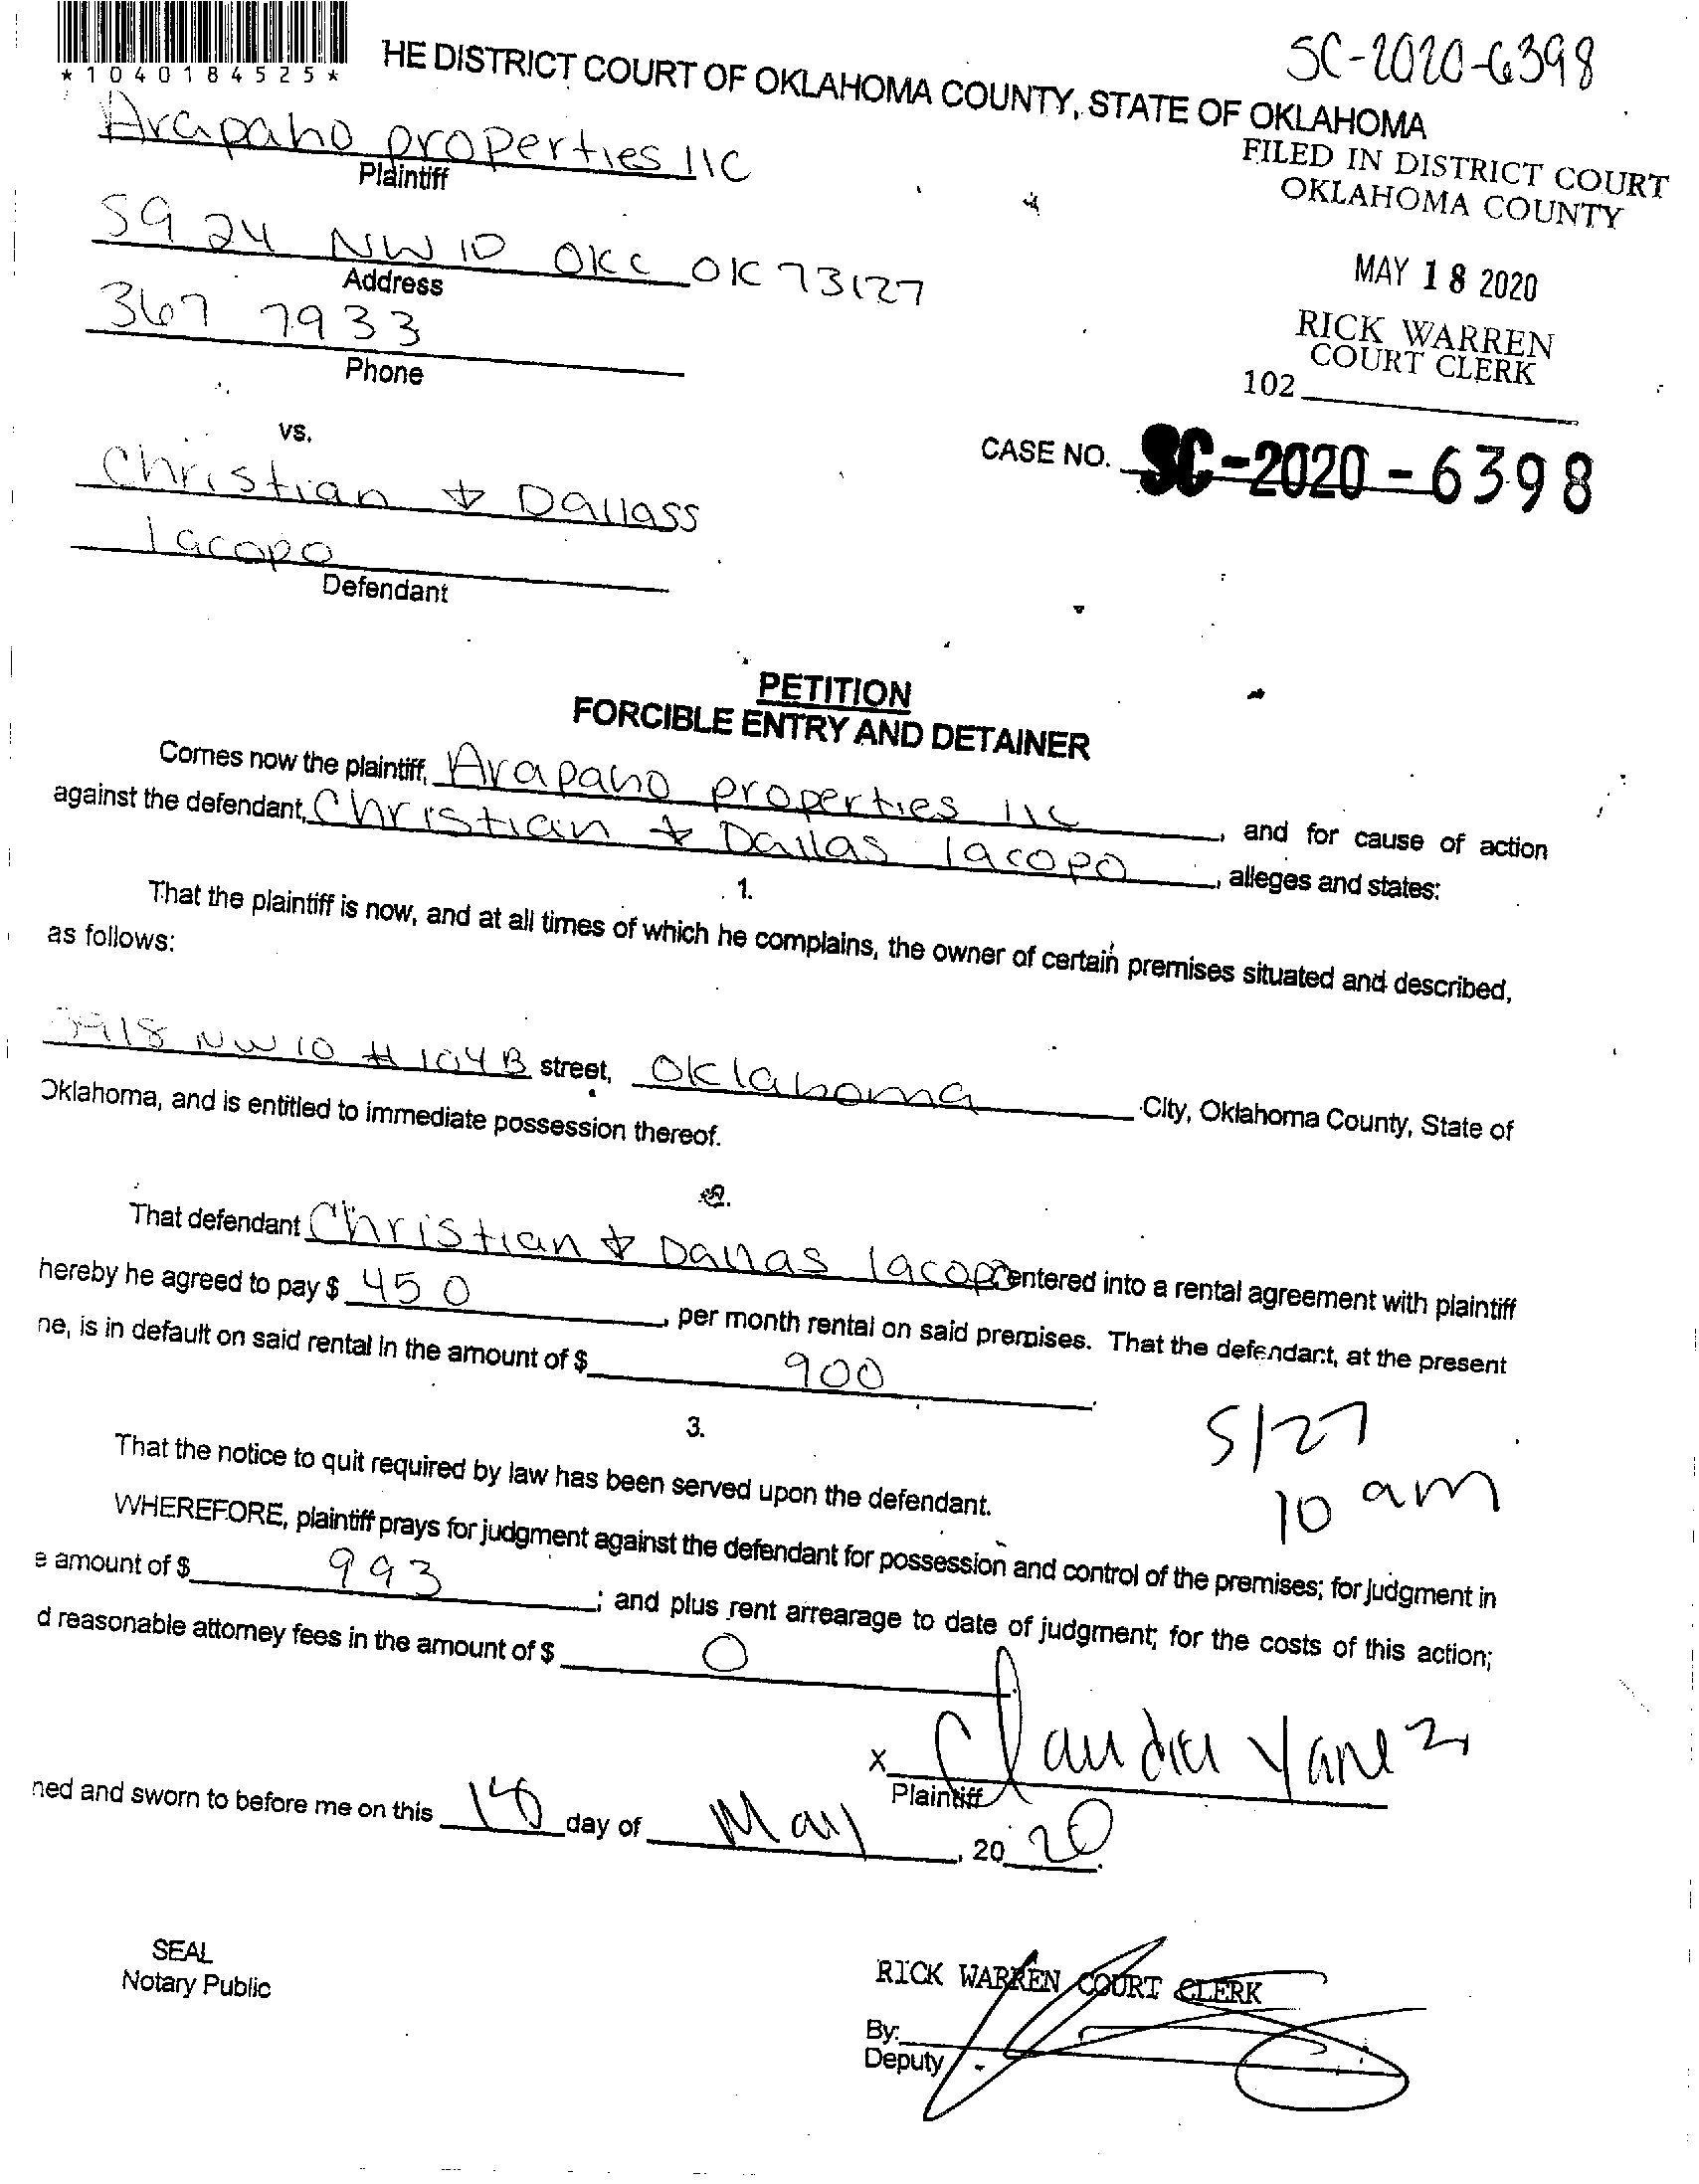 SC-2020-6398
*1040184525*
HE DISTRICT COURT OF OKLAHOMA COUNTY, STATE OF OKLAHOMA
FILED IN DISTRICT COURT
OKLAHOMA COUNTY
MAY 18 2020
RICK WARREN
COURT CLERK
102
Arapaho properties llc
Plaintiff
5924 NW 10 OKC OK 73127
Address
367 7933
Phone
vs.
CASE NO. SC-2020-6398
Christian & Dallass
Iacopo
Defendant
PETITION
FORCIBLE ENTRY AND DETAINER
Comes now the plaintiff, Arapaho properties llc, and for cause of action
against the defendant, Christian & Dallas Iacopo, alleges and states:
1.
That the plaintiff is now, and at all times of which he complains, the owner of certain premises situated and described,
as follows:
5918 NW 10 # 104B street, Oklahoma City, Oklahoma County, State of
Oklahoma, and is entitled to immediate possession thereof.
2.
That defendant Christian & Dallas Iacopo entered into a rental agreement with plaintiff
hereby he agreed to pay $ 450, per month rental on said premises. That the defendant, at the present
ne, is in default on said rental in the amount of $ 900.
3.
That the notice to quit required by law has been served upon the defendant.
5/27
10 am
WHEREFORE, plaintiff prays for judgment against the defendant for possession and control of the premises; for judgment in
e amount of $ 993; and plus rent arrearage to date of judgment; for the costs of this action;
d reasonable attorney fees in the amount of $ 0.
x Claudia Yanez
Plaintiff
ned and sworn to before me on this 18 day of May, 2020.
SEAL
Notary Public
RICK WARREN COURT CLERK
By:
Deputy